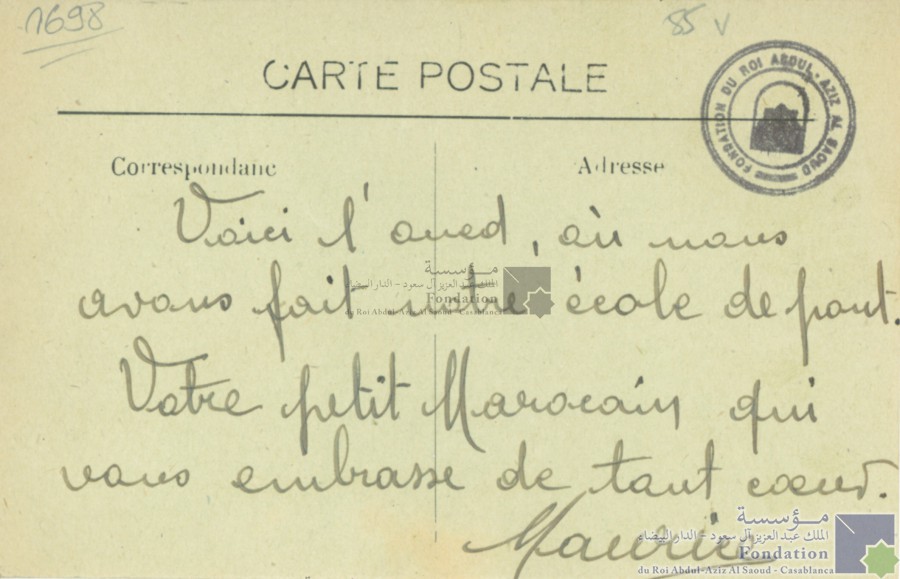 1698
85 v
CARTE POSTALE
FONDATION DU ROI ABDUL-AZIZ AL SAOUD
Correspondanc
Adresse
Voici l'oued, où nous
avons fait notre école de pont.
مؤسسة
الملك عبد العزيز آل سعود - الدار البيضاء
Fondation
du Roi Abdul-Aziz Al Saoud - Casablanca
Votre petit Marocain qui
vous embrasse de tout cœur.
Maurice
مؤسسة
الملك عبد العزيز آل سعود - الدار البيضاء
Fondation
du Roi Abdul-Aziz Al Saoud - Casablanca